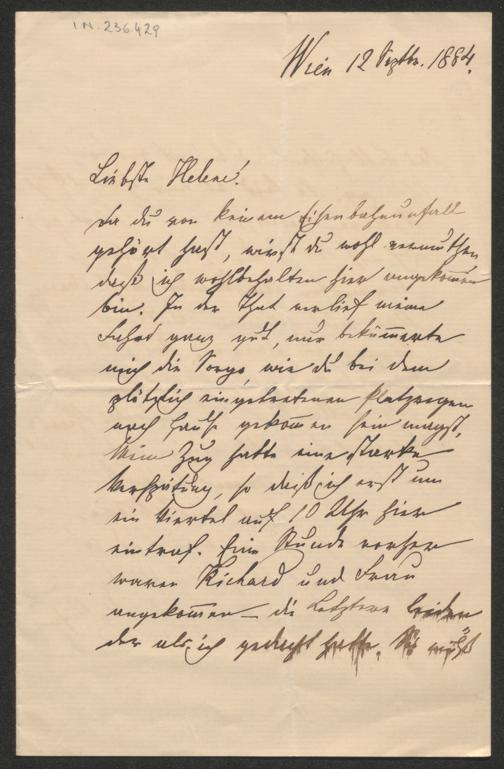 IN. 236.429
Wien 12 Septbr. 1884.
Liebste Helene!
Da du von keinem Eisenbahnunfall
gehört hast, wirst du wohl vermuthen
daß ich wohlbehalten hier angekommen
bin. In der That verlief meine
Fahrt ganz gut, nur bekümmerte
mich die Sorge wie du bei dem
plötzlich eingetretenen Platzregen
nach Hause gekommen sein magst.
Mein Zug hatte eine starke
Verspätung, so daß ich erst um
ein Viertel auf 10 Uhr hier
eintraf. Eine Stunde vorher
waren Richard und Frau
angekommen – die Letztere leider
der als ich gedacht hatte.